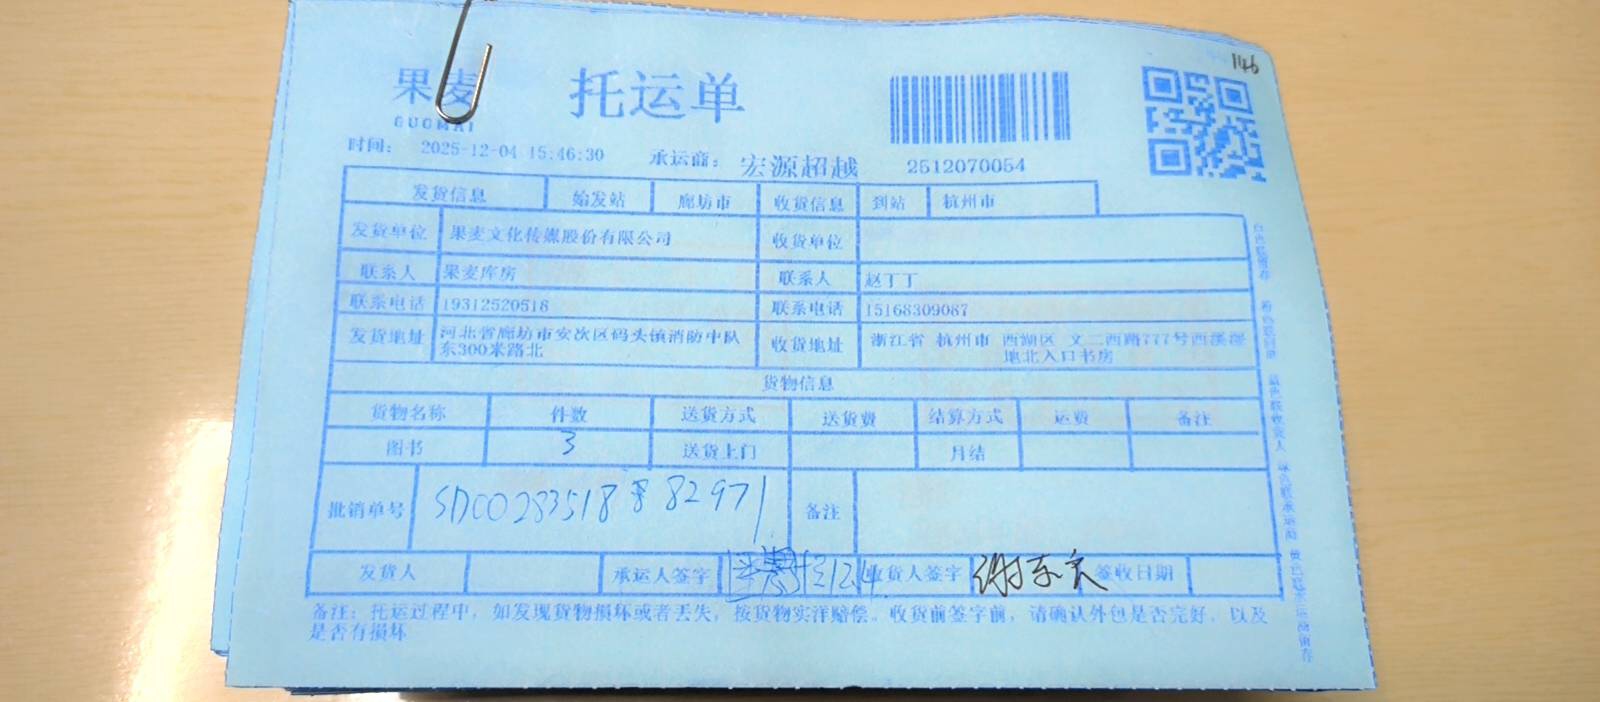 146
果麦 托运单
GUOMAI
时间: 2025-12-04 15:46:30 承运商: 宏源超越 2512070054
发货信息 始发站 廊坊市 收货信息 到站 杭州市
发货单位 果麦文化传媒股份有限公司 收货单位
联系人 果麦库房 联系人 赵丁丁
联系电话 19312520518 联系电话 15168309087
发货地址 河北省廊坊市安次区码头镇消防中队
东300米路北
收货地址 浙江省 杭州市 西湖区 文二西路777号西溪湿
地北入口书房
货物信息
货物名称 件数 送货方式 送货费 结算方式 运费 备注
图书 3 送货上门 月结
批销单号 SDC0283518 82971 备注
发货人 承运人签字 12.4 收货人签字 签收日期
备注: 托运过程中, 如发现货物损坏或者丢失, 按货物实洋赔偿。收货前签字前, 请确认外包是否完好, 以及
是否有损坏